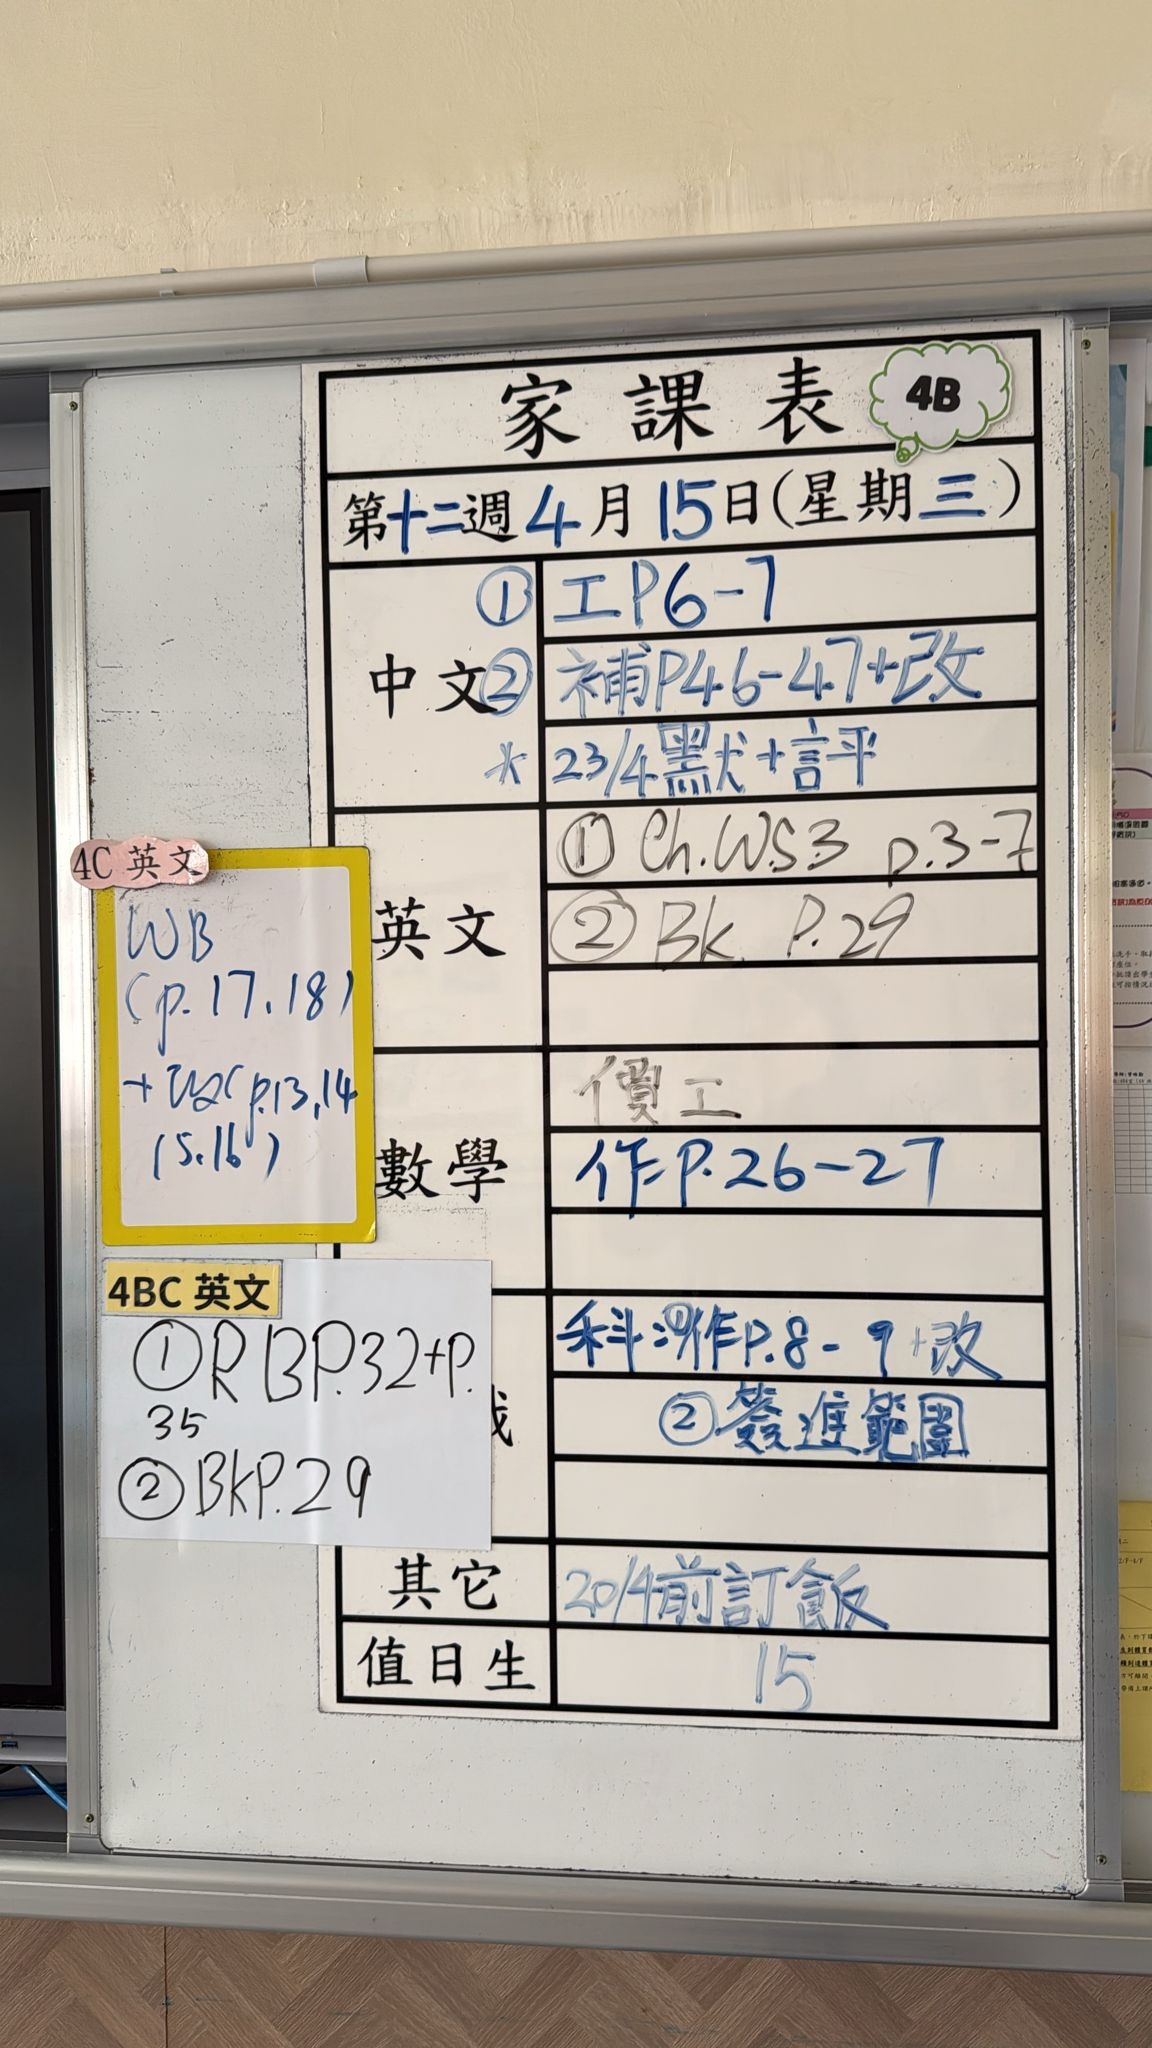 家課表
4B
第十二週4月15日(星期三)
中文
① 工P6-7
② 補P46-47+改
* 23/4默+評
英文
① Ch.WS3 p.3-7
② Bk P.29
數學
價工
作P.26-27
科:①作P.8-9+改
②簽進範圍
其它
20/4前訂飯
值日生
15
4C 英文
WB
(p.17.18)
+改(p.13,14
15.16)
4BC 英文
① R BP.32+P.
35
② BkP.29